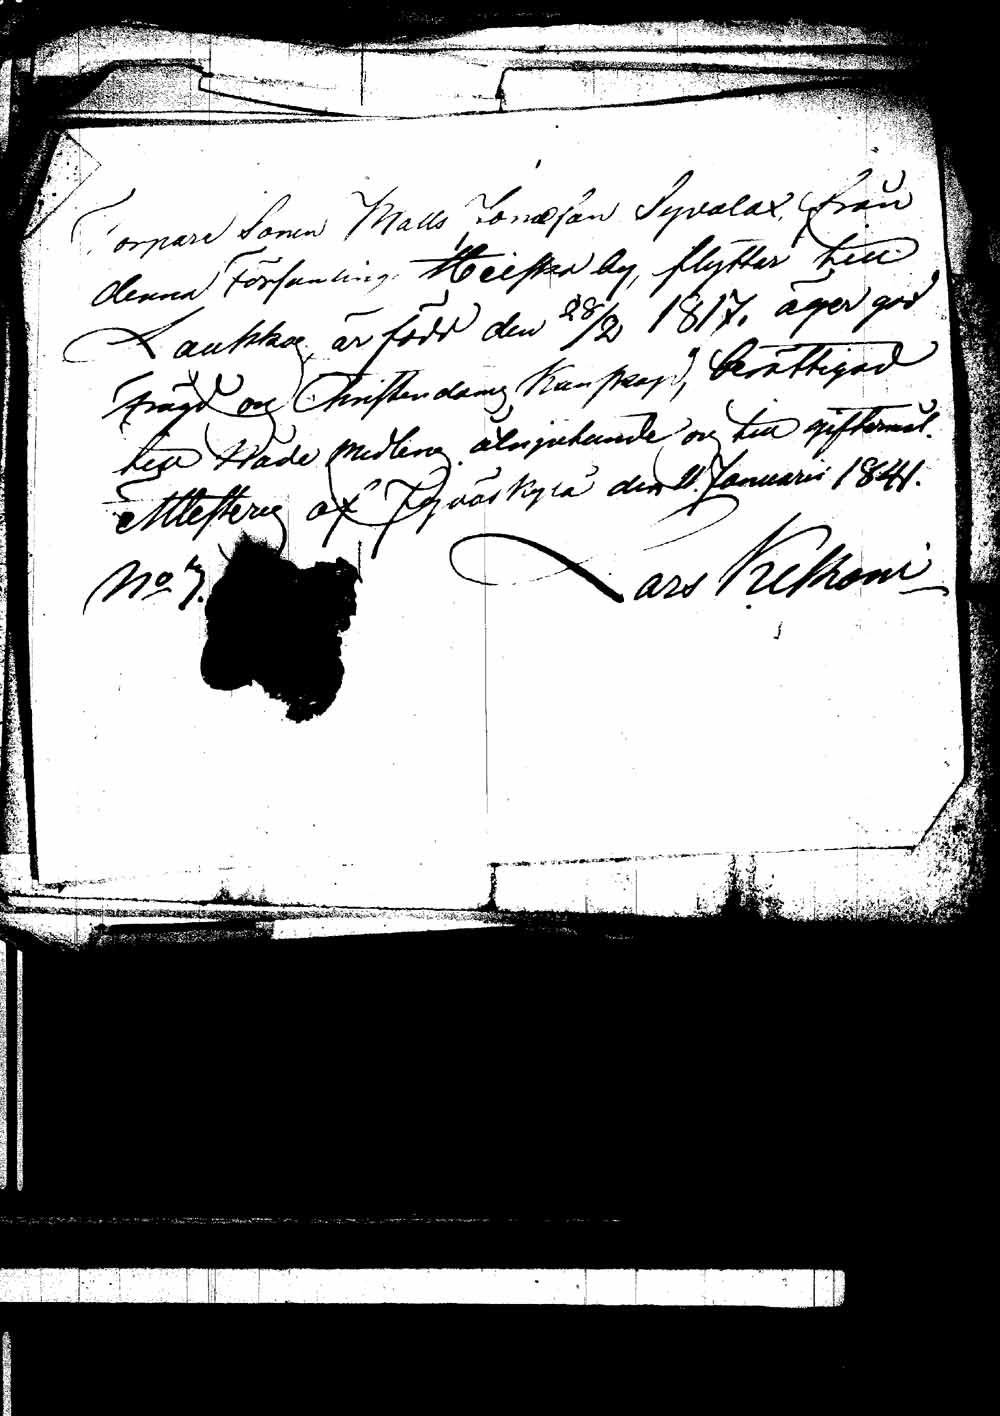 Torpare Sonen Matts Jonasson Syvälax, från
denna Församling Heiska by, flyttar till
Laukkae, är född den 28/2 1817. äger god
frägd og Christendoms Kunskap, berättigad
till Nåde medlens åtnjutande og till giftermål.
Attesteras af Jyväskylä den 11 Januarii 1841.
No 7. Lars Kekoni